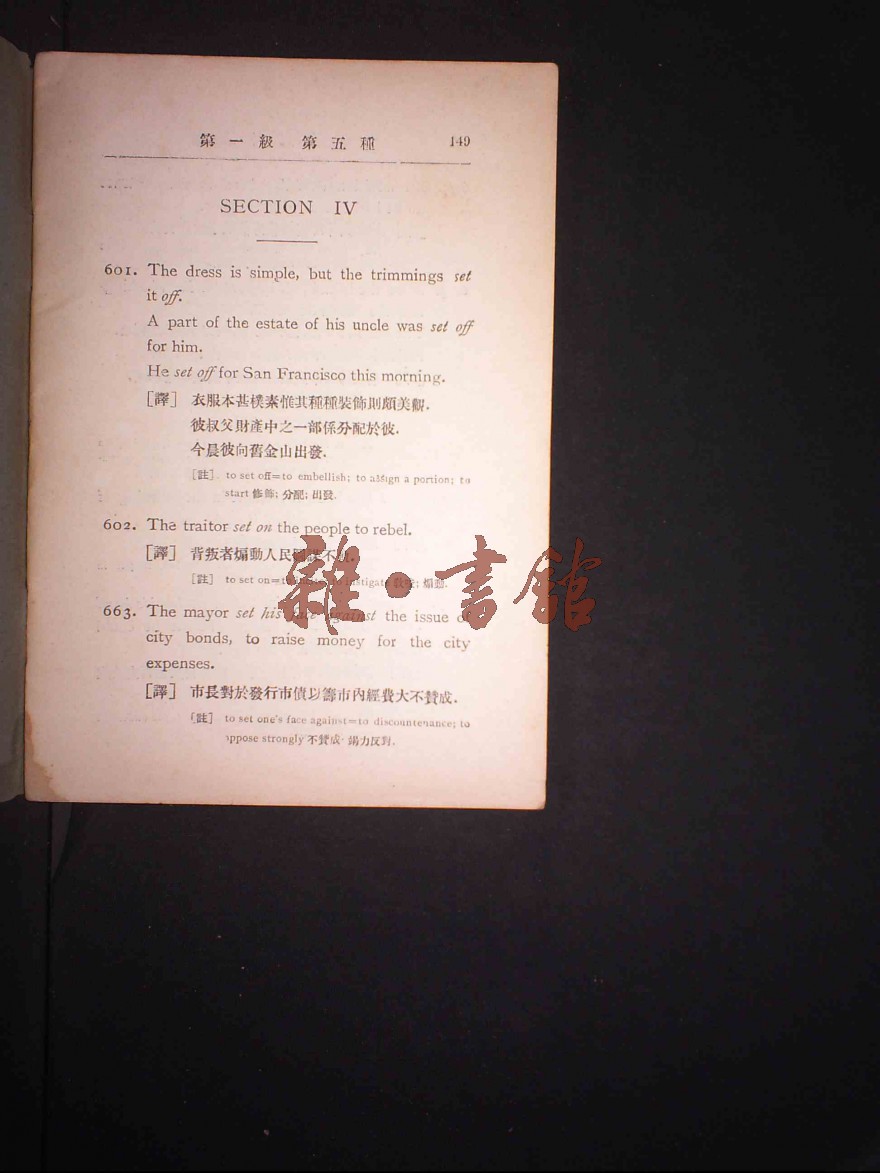 第一級 第五種 149
SECTION IV
601. The dress is simple, but the trimmings set
it off.
A part of the estate of his uncle was set off
for him.
He set off for San Francisco this morning.
[譯] 衣服本甚樸素惟其種種裝飾則頗美觀.
彼叔父財產中之一部係分配於彼.
今晨彼向舊金山出發.
[註] to set off=to embellish; to assign a portion; to
start 修飾; 分配; 出發.
602. The traitor set on the people to rebel.
[譯] 背叛者煽動人民圖謀不軌.
[註] to set on= to instigate 煽惑.
663. The mayor set his face against the issue of
city bonds, to raise money for the city
expenses.
[譯] 市長對於發行市債以籌市內經費大不贊成.
[註] to set one's face against=to discountenance; to
oppose strongly 不贊成; 竭力反對.
雜·書館